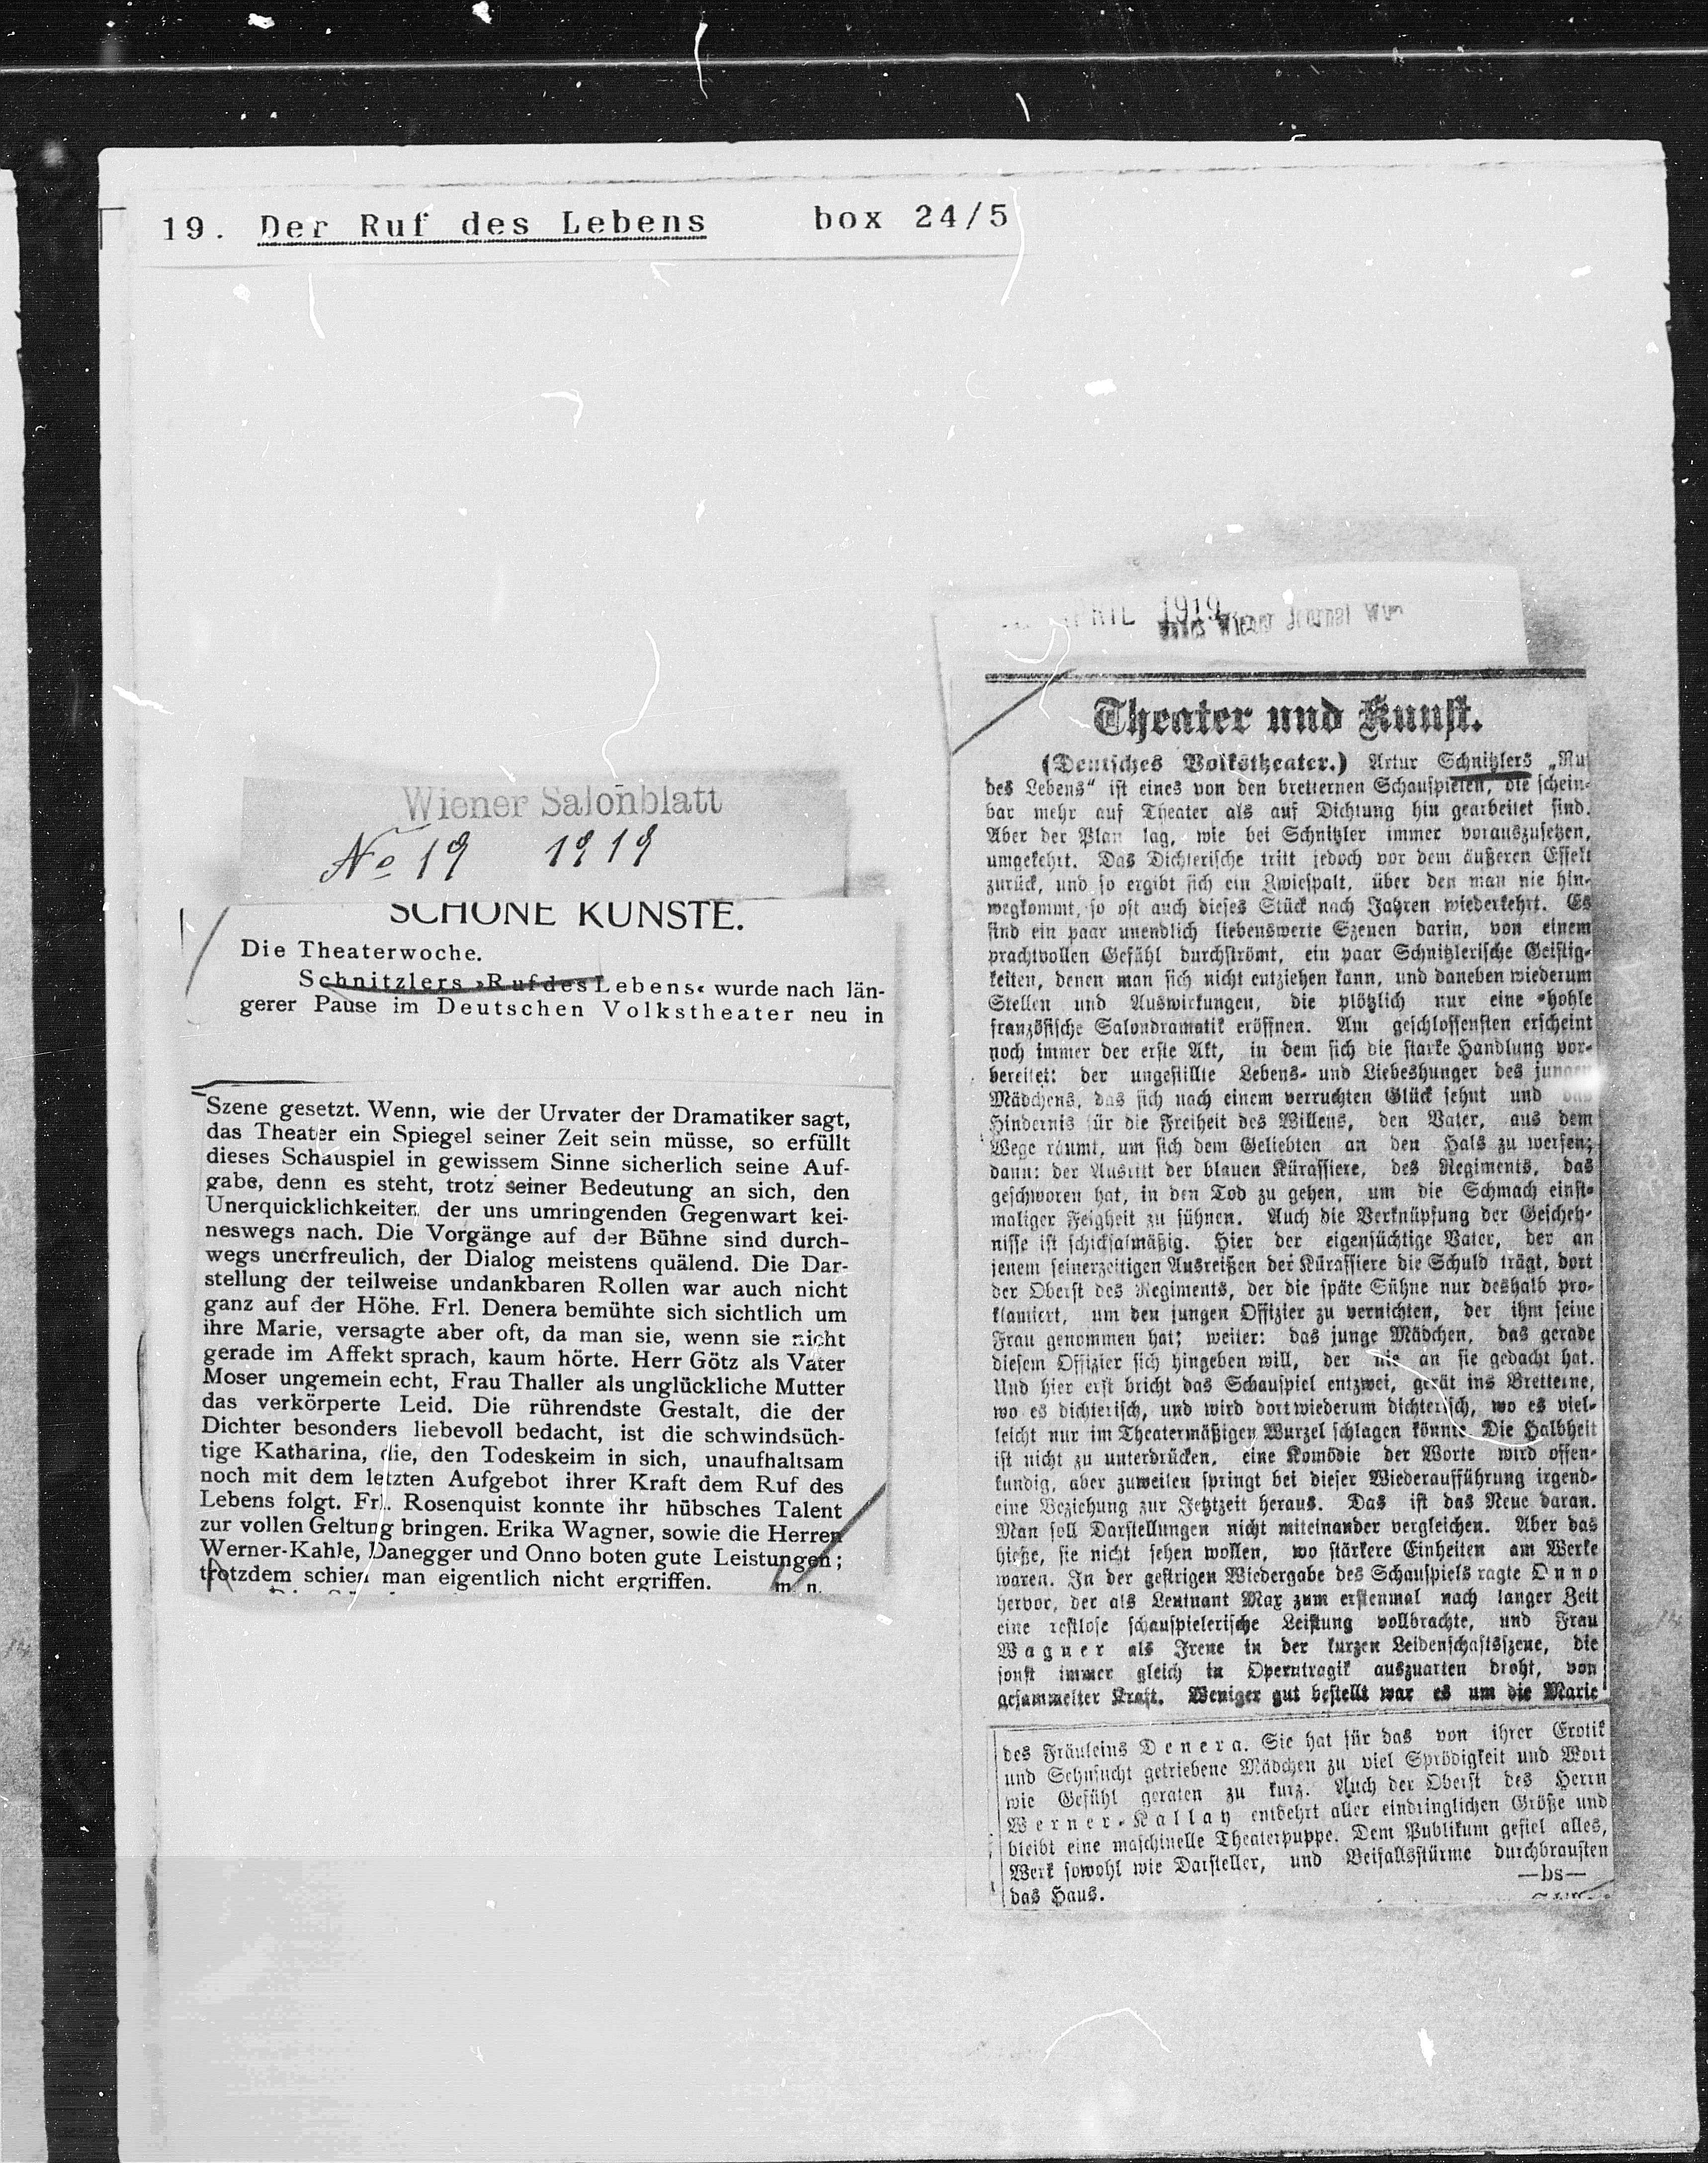 19. Der Ruf des Lebens box 24/5
Wiener Salonblatt
No 19 1919
SCHÖNE KÜNSTE.
Die Theaterwoche.
Schnitzlers »Ruf des Lebens« wurde nach län-
gerer Pause im Deutschen Volkstheater neu in
Szene gesetzt. Wenn, wie der Urvater der Dramatiker sagt,
das Theater ein Spiegel seiner Zeit sein müsse, so erfüllt
dieses Schauspiel in gewissem Sinne sicherlich seine Auf-
gabe, denn es steht, trotz seiner Bedeutung an sich, den
Unerquicklichkeiten der uns umringenden Gegenwart kei-
neswegs nach. Die Vorgänge auf der Bühne sind durch-
wegs unerfreulich, der Dialog meistens quälend. Die Dar-
stellung der teilweise undankbaren Rollen war auch nicht
ganz auf der Höhe. Frl. Denera bemühte sich sichtlich um
ihre Marie, versagte aber oft, da man sie, wenn sie nicht
gerade im Affekt sprach, kaum hörte. Herr Götz als Vater
Moser ungemein echt, Frau Thaller als unglückliche Mutter
das verkörperte Leid. Die rührendste Gestalt, die der
Dichter besonders liebevoll bedacht, ist die schwindsüch-
tige Katharina, die, den Todeskeim in sich, unaufhaltsam
noch mit dem letzten Aufgebot ihrer Kraft dem Ruf des
Lebens folgt. Frl. Rosenquist konnte ihr hübsches Talent
zur vollen Geltung bringen. Erika Wagner, sowie die Herren
Werner-Kahle, Danegger und Onno boten gute Leistungen;
trotzdem schien man eigentlich nicht ergriffen. m. n.
APRIL 1919
Neues Wiener Journal Wien
Theater und Kunst.
(Deutsches Volkstheater.) Artur Schnitzlers „Ruf
des Lebens“ ist eines von den bretternen Schauspielen, die schein-
bar mehr auf Theater als auf Dichtung hin gearbeitet sind.
Aber der Plan lag, wie bei Schnitzler immer vorauszusetzen,
umgekehrt. Das Dichterische tritt jedoch vor dem äußeren Effekt
zurück, und so ergibt sich ein Zwiespalt, über den man nie hin-
wegkommt, so oft auch dieses Stück nach Jahren wiederkehrt. Es
sind ein paar unendlich liebenswerte Szenen darin, von einem
prachtvollen Gefühl durchströmt, ein paar Schnitzlerische Geistig-
keiten, denen man sich nicht entziehen kann, und daneben wiederum
Stellen und Auswirkungen, die plötzlich nur eine hohle
französische Salondramatik eröffnen. Am geschlossensten erscheint
noch immer der erste Akt, in dem sich die starke Handlung vor-
bereitet: der ungestillte Lebens- und Liebeshunger des jungen
Mädchens, das sich nach einem verruchten Glück sehnt und das
Hindernis für die Freiheit des Willens, den Vater, aus dem
Wege räumt, um sich dem Geliebten an den Hals zu werfen;
dann: der Ausritt der blauen Kürassiere, des Regiments, das
geschworen hat, in den Tod zu gehen, um die Schmach einst-
maliger Feigheit zu sühnen. Auch die Verknüpfung der Gescheh-
nisse ist schicksalmäßig. Hier der eigensüchtige Vater, der an
jenem seinerzeitigen Ausreißen der Kürassiere die Schuld trägt, dort
der Oberst des Regiments, der die späte Sühne nur deshalb pro-
klamiert, um den jungen Offizier zu vernichten, der ihm seine
Frau genommen hat; weiter: das junge Mädchen, das gerade
diesem Offizier sich hingeben will, der nie an sie gedacht hat.
Und hier erst bricht das Schauspiel entzwei, gerät ins Bretterne,
wo es dichterisch, und wird dort wiederum dichterisch, wo es viel-
leicht nur im Theatermäßigen Wurzel schlagen könnte. Die Halbheit
ist nicht zu unterdrücken, eine Komödie der Worte wird offen-
kundig, aber zuweilen springt bei dieser Wiederaufführung irgend-
eine Beziehung zur Jetztzeit heraus. Das ist das Neue daran.
Man soll Darstellungen nicht miteinander vergleichen. Aber das
hieße, sie nicht sehen wollen, wo stärkere Einheiten am Werke
waren. In der gestrigen Wiedergabe des Schauspiels ragte Onno
hervor, der als Leutnant Max zum erstenmal nach langer Zeit
eine restlose schauspielerische Leistung vollbrachte, und Frau
Wagner als Irene in der kurzen Leidenschaftsszene, die
sonst immer gleich in Operntragik auszuarten droht, von
gesammelter Kraft. Weniger gut bestellt war es um die Marie
des Fräuleins Denera. Sie hat für das von ihrer Erotik
und Sehnsucht getriebene Mädchen zu viel Sprödigkeit und Wort
wie Gefühl geraten zu kurz. Auch der Oberst des Herrn
Werner-Kallay entbehrt aller eindringlichen Größe und
bleibt eine maschinelle Theaterpuppe. Dem Publikum gefiel alles,
Werk sowohl wie Darsteller, und Beifallsstürme durchbrausten
das Haus. —bs—